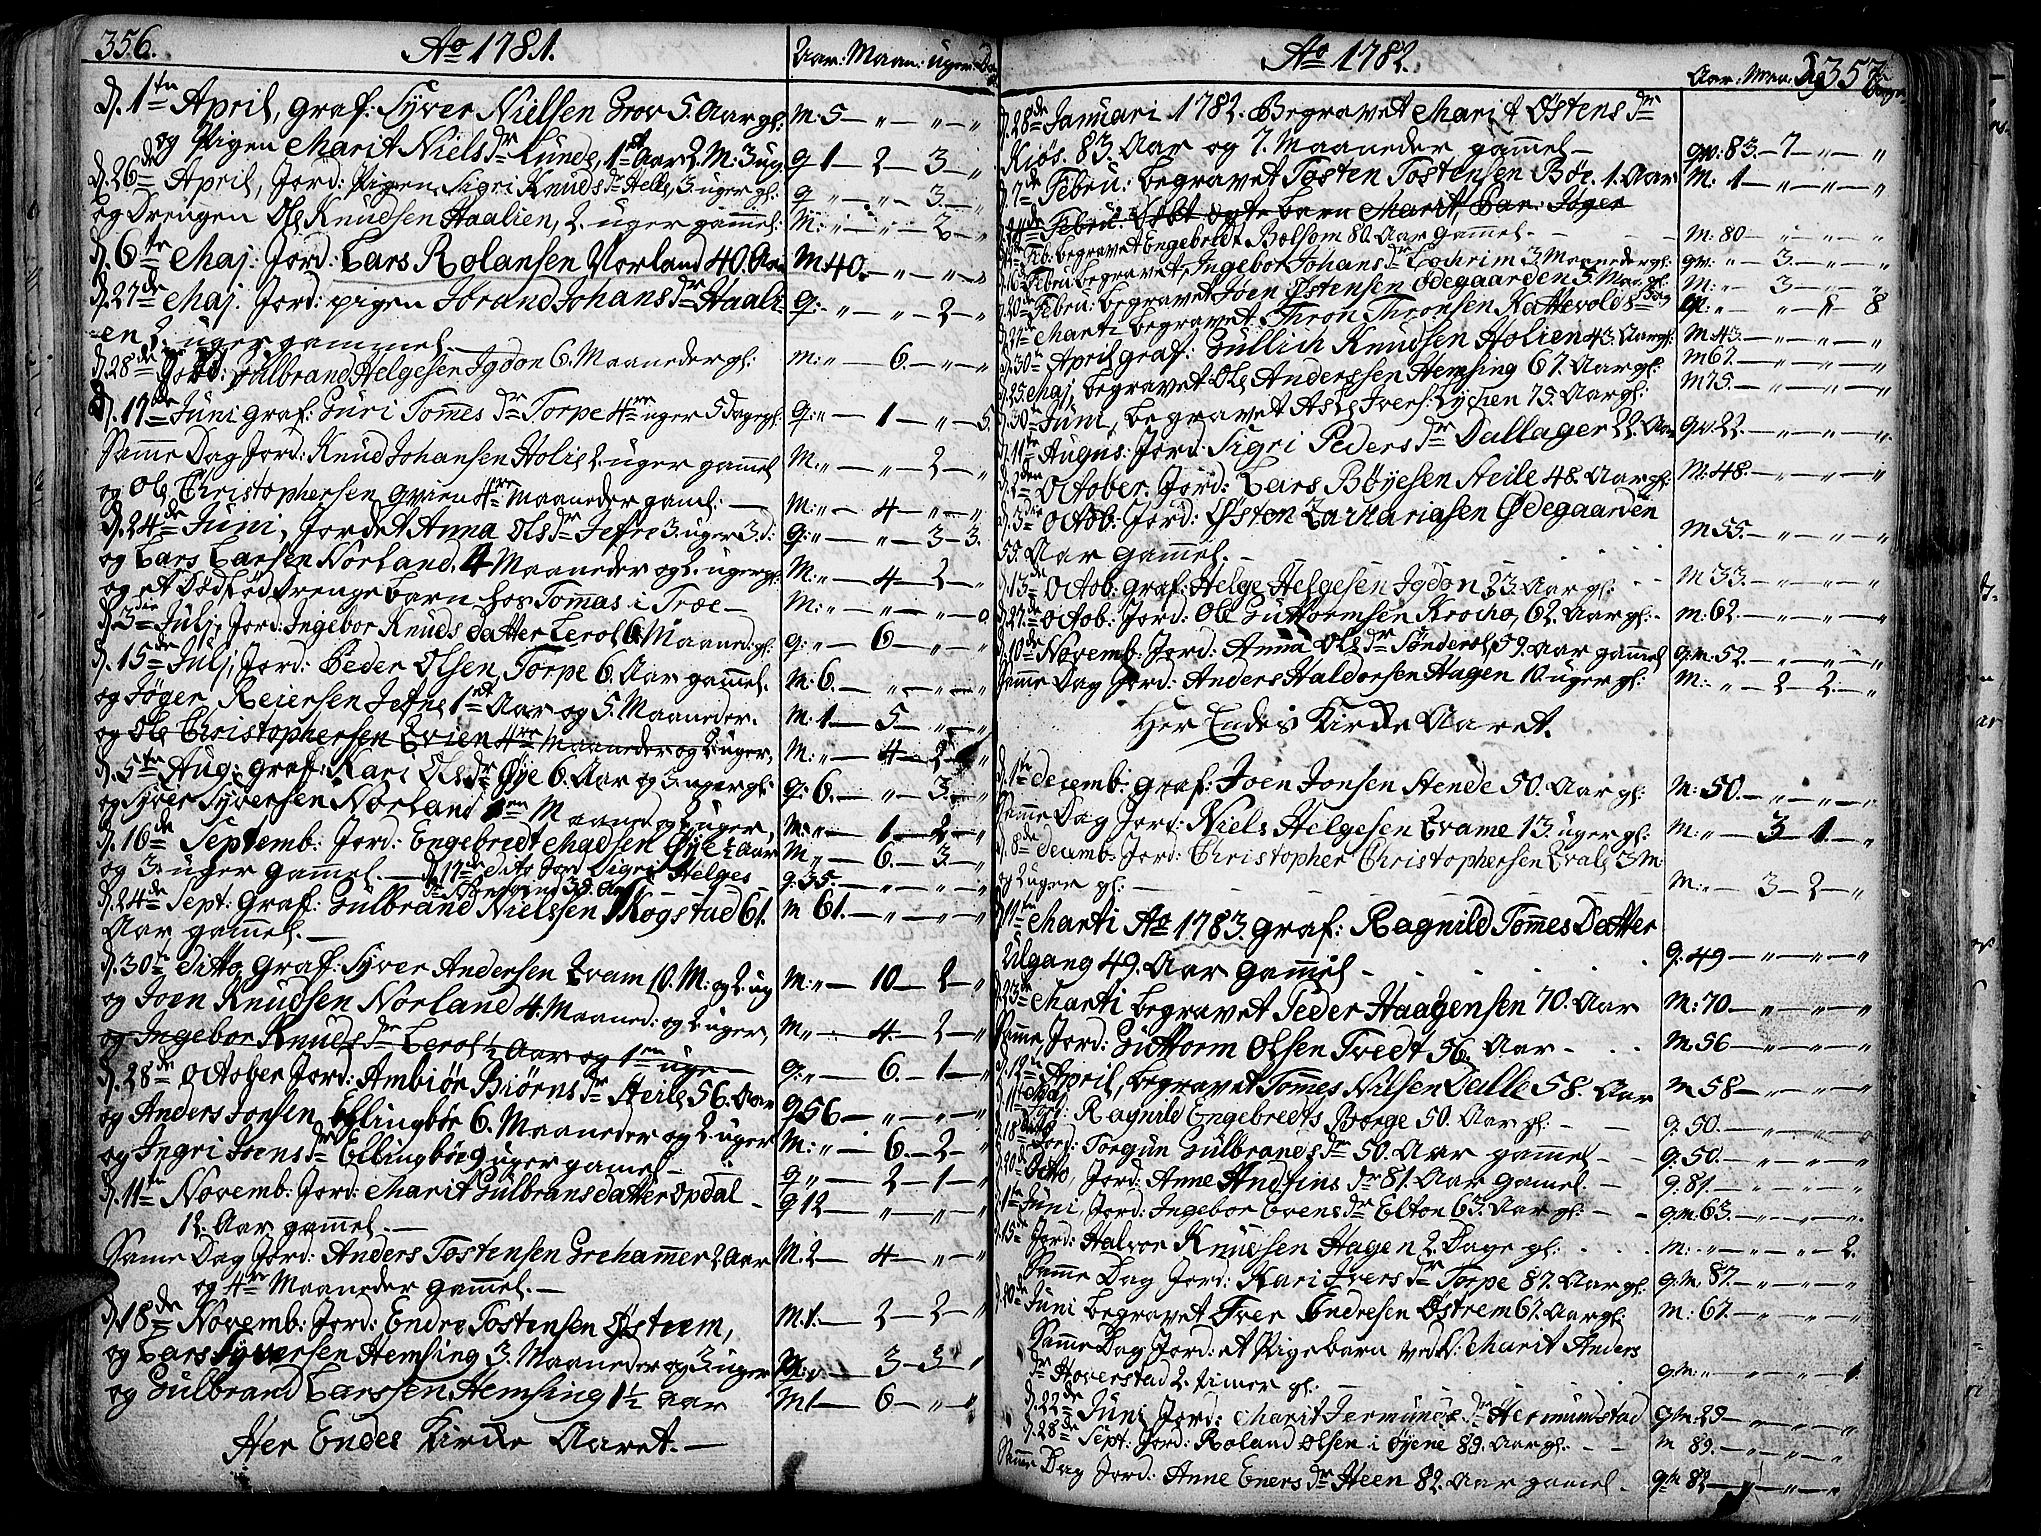 356.
Ao 1781.
Aar: Maan: uger: D
d. 1te April, graf: Syver Nielsen Grov 5. Aar gl: M: 5 — „ — „ — „
og Pigen Marit Nielsdr Lunde, 1st Aar 2. M: 3 ug q 1 — 2 — 3 — „
d. 26de April, Jord: Pigen Sigri Knudsdr Helle, 3. uger gl: q „ — „ — 3. — „
og Drengen Ole Knudsen Haalien, 2. uger gammel: M: „ — „ — 2 — „
d. 6te Maj: Jord: Lars Rolansen Norland 40. Aar M: 40. — „ — „ — „
d. 27de Maj: Jord: pigen Jbrand Johansdr Haali- q: „ — „ — 2 — „
-en 2. uger gammel. —
d. 28de Jord: Gulbrand Helgesen Jgdon 6. Maaneder gl: m: „ — 6. — „ — „
d. 17de Juni graf: Guri Tomesdr Torpe 4re uger 5 dage gl: q: „ — 1 — „ — 5.
Samme Dag Jord: Knud Johansen Holie 2. uger gammel M: „ — „ — 2 — „
og Ole Christophersen Qvien 4re Maaneder gamel: — M: „ — 4 — „ — „
d. 24de Juni, Jordet Anna Olsdr Jefre 3. uger 3. d: q: „ — „ — 3 — 3.
og Lars Larsen Norland. 4 Maaneder og 2. uger gl: M: „ — 4 — 2 — „
og et Dødfød Drengebarn hos Tommas i Troe — M: „ — „ — „ — 0
d. 3die Julj, Jord: Ingebor Knuds datter Lerol 6 Maaned: gl: q: „ — 6 — „ — „
d. 15de Julj, Jord: Peder Olsen, Torpe 6. Aar gammel. M: 6. — „ — „ — „
og Jøger Reiersen Jefne 1st Aar og 5. Maaneder. M: 1 — 5 — „ — „
og Ole Christophersen Qvien 4re Maaneder og 2. uger, M: „ — 4 — 2 — „
d. 5te Aug: graf: Kari Olsdr Øye 6. Aar og 3. uger gl: q: 6. — „ — 3. — „
og Syver Syversen Norland 1en Maaned og 2. uger, M: „ — 1 — 2 — „
d. 16de Septemb: Jord: Engebredt Madsen Øye ½ Aar M: „ — 6. — 3 — „
og 3. uger gammel. — d. 17de dito Jord Sigri Helges q: 35. — „ — „ — „
d. 24de Sept: graf: Gulbrand Nielssen Skogstad 61. m 61. — „ — „ — „
Aar gammel. —
d. 30te ditto, graf: Syver Andersen Qvam 10. M: og 2. ug M: „ — 10 — 2 — „
og Joen Knudsen Norland 4. Maaned: og 2. uger, M: „ — 4. — 2 — „
og Ingebor Knudsdr Lerol ½ Aar og 1en uge — q: „ — 6. — 1 — „
d. 28de October Jord: Ambiør Biørnsdr Steile 56. Aar q 56 — „ — „ — „
og Anders Jonsen, Ellingbør 6. Maaneder og 2. uger M: „ — 6. — 2 — „
og Ingri Joensdr Ellingbøe 9 uger gamel — q „ — 2 — 1 — „
d. 11te Novemb: Jord: Marit Gulbransdatter Opdal — q 12 — „ — „ — „
12. Aar gammel. —
Same Dag Jord: Anders Tostensen Grehammer 2 Aar M: 2 — 4 — „ — „
og 4re Maaneder gammel. —
d. 18de Novemb: Jord: Endre Tostensen Østrem, M: 1. — 2 — 2 — „
og Lars Syversen Hemsing 3. Maaneder og 3. uger M: „ — 3 — 3 — „
og Gulbrand Larssen Hemsing 1½ aar M 1 — 6 — „ — „
Her Endes Kirke Aaret. —
Ao 1782.
357
Aar: Man: Ug Dage
d. 28de Januari 1782. Begravet Marit Østensdr
Kiøs. 83. Aar og 7. Maaneder gammel — qv: 83. — 7 — „ — „
d. 7de Febru: begravet Tosten Tostensen Bøe. 1. Aar M: 1 — „ — „ — „
d. 14de Febru: Døbt ægte barn Marit, Bar: Jøger
Feb. begravet Engebredt Bolsom 80. Aar gammel. — M: 80 — „ — „ — „
Febru begravet, Ingebor Johansdr Lochrim 3. Maaneder gl: qv: „ — 3. — „ — „
Febru: begravet Joen Østensen Ødegaarden 3. Ma: gl: M: „ — 3 — „ — „
d. 24de Marti begravet Thron Thronsen Kattevold 8te dag „ — „ — „ — 8
d. 30te April graf: Gullich Knudsen Holien 43. Aar gl: M 43. — „ — „ — „
d. 25 Maj, begravet Ole Anderssen Hemsing 67. Aar gl: M 67. — „ — „ — „
d. 30te Juni, begravet Asle Ivers: Lychen 75. Aar gl: M 75. — „ — „ — „
d. 11te Augus: Jord: Sigri Pedersdr Dallager 22. Aar qv 22. — „ — „ — „
d. 2den October. Jord: Lars Bøyesen Steile 48. Aar gl: M: 48. — „ — „ — „
d. 3die Octob: Jord: Østen Zachariasen Ødegaarden
55. Aar gammel. — M 55. — „ — „ — „
d. 13de Octob: graf: Helge Helgesen Jgdon, 33. Aar gl: M 33. — „ — „ — „
d. 27de Octob: Jord: Ole Guttormsen Krocho, 62. Aar gl: — M: 62. — „ — „ — „
d. 10de Novemb: Jord: Anna Olsdr Sønderol, 52. aar gammel q.m: 52. — „ — „ — „
Same Dag Jord: Anders Haldorsen Hagen 10. uger gl: M: „ — 2 — 2 — „
Her Endes Kirke Aaret.
d. 1te decemb: graf: Joen Jonsen Stende 50. Aar gl: M: 50. — „ — „ — „
Samme Dag Jord: Niels Helgesen Qvame 13. uger gl: M: „ — 3 — 1. — „
d. 8de decemb: Jord: Christopher Christophersen Qvale 3 M:
og 2. uger gl: — M: „ — 3 — 2 — „
d. 17te Marti Ao 1783. graf: Ragnild Tomes Datter
Ulgang 49. Aar gammel — q: 49 — „ — „ — „
d. 23de Marti begravet Peder Haagensen 70. Aar M: 70 — „ — „ — „
Samme, Jord: Guttorm Olsen Tvedt 56. Aar — M. 56 — „ — „ — „
d. 12te April, begravet Tommes Nilsen Dalle 58. Aar M 58 — „ — „ — „
d. 11te Maj: Ragnild Engebredts Borge 50. Aar gl: — q: 50. — „ — „ — „
d. 18de Jord: Torgun Gulbransdr 50. Aar gammel — q: 50. — „ — „ — „
Ditto, Jord: Anne Andfinsdr 81. Aar gamel. — q: 81. — „ — „ — „
d. 1te Juni, Jord: Ingebor Evensdr Elton 63. Aar gl: — q.m 63. — „ — „ — „
d. 15de Jord: Halvor Knudsen Hagen 2. Dage gl: M: „ — „ — „ — 2.
Samme Dag Jord: Kari Iversdr Torpe 87. Aar gl: q.m. 87. — „ — „ — „
Juni begravet Iver Endresen Østrem 67. Aar gl: M: 67. — „ — „ — „
Samme Dag Jord: et Pigebarn ved N: Marit Anders
dr Hoverstad 2. timer gl: q.m: „ — „ — „ —
d. 22de Juni Jord: Marit Jermundsdr Hermundstad q.m. 29 — „ — „ — „
d. 28de Sept: Jord: Roland Olsen i Øyene 89. Aar gl: — m 89. — „ — „ — „
Samme Dag Jord: Anne Enersdr Heen 82. Aar gamel. q.m 82 — „ — „ — „